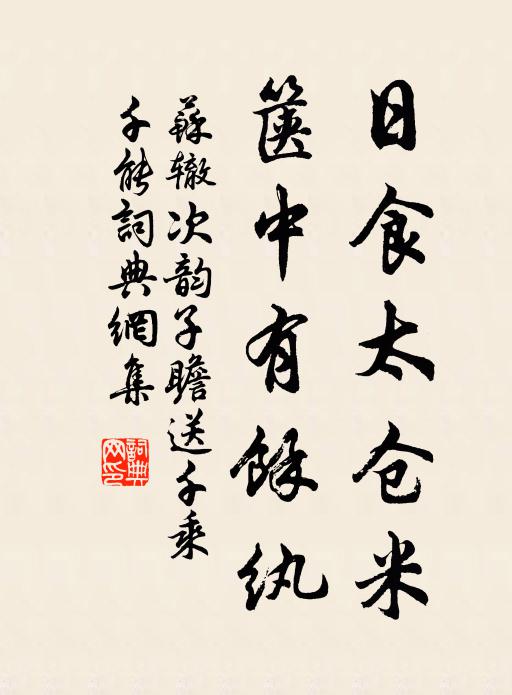 日食太仓米
箧中有餘纨
蘇辙次韵子瞻送千乘
千能詞典網集
詞典網印